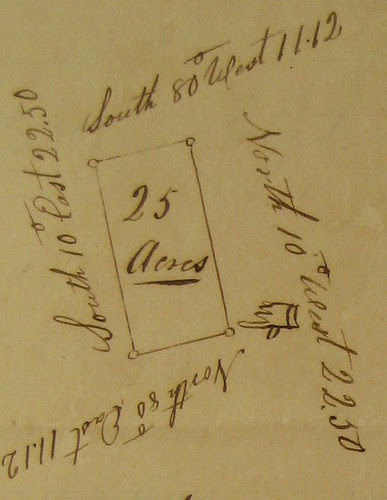 South 80° West 11.12
South 10° East 22.50
North 10° West 22.50
25
Acres
North 80° East 11.12